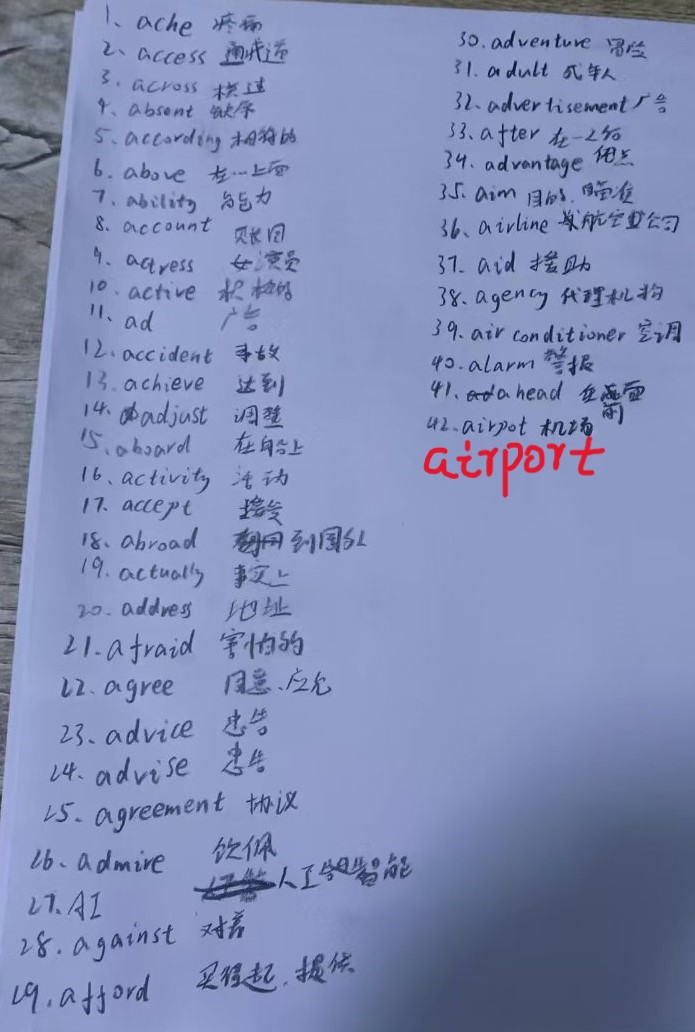 1、ache 疼痛
2、access 通道
3、across 横过
4、absent 缺席
5、according 相符的
6、above 在…上面
7、ability 能力
8、account 账目
9、actress 女演员
10、active 积极的
11、ad 广告
12、accident 事故
13、achieve 达到
14、adjust 调整
15、aboard 在船上
16、activity 活动
17、accept 接受
18、abroad 到国外
19、actually 事实上
20、address 地址
21、afraid 害怕的
22、agree 同意、应允
23、advice 忠告
24、advise 忠告
25、agreement 协议
26、admire 钦佩
27、AI 人工智能
28、against 对着
29、afford 买得起、提供
30、adventure 冒险
31、adult 成年人
32、advertisement 广告
33、after 在…之后
34、advantage
35、aim 目的、瞄准
36、airline 航空公司
37、aid 援助
38、agency 代理机构
39、air conditioner 空调
40、alarm 警报
41、ahead 在前面
42、airpot 机场
airport